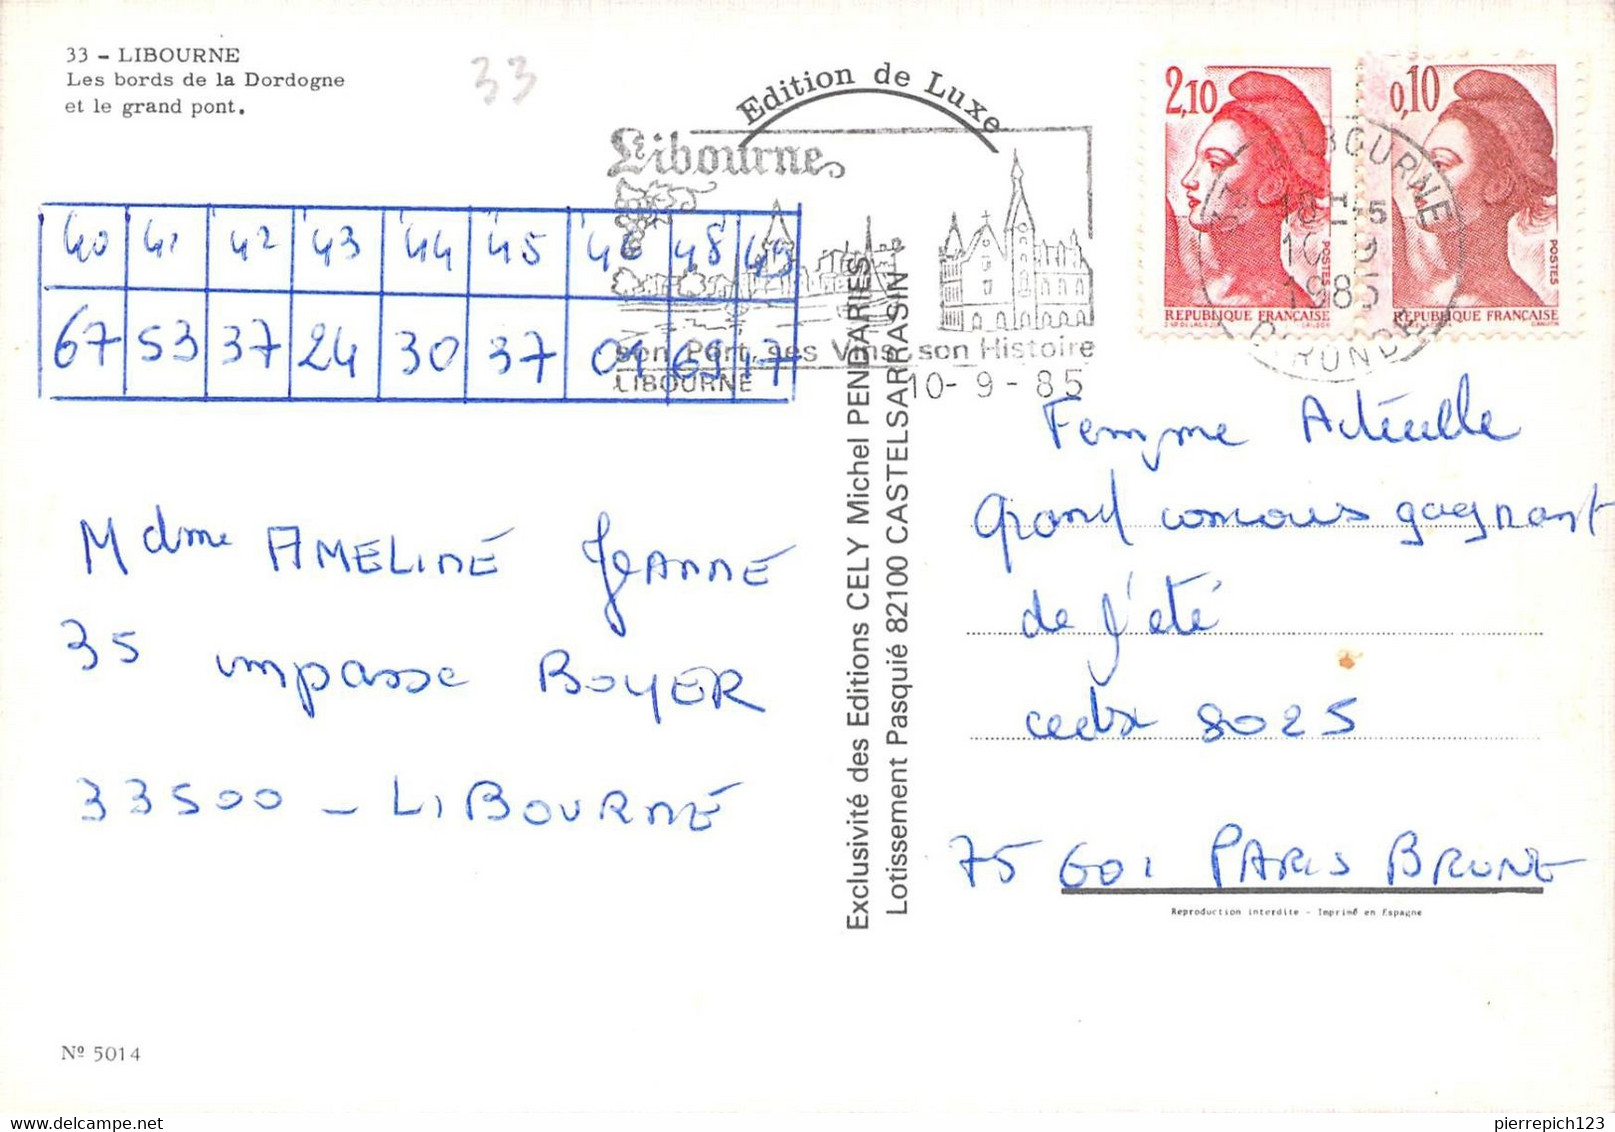 33 - LIBOURNE
Les bords de la Dordogne
et le grand pont.
33
Edition de Luxe
Libourne
son Port, ses Vins, son Histoire
LIBOURNE
10-9-85
2,10
POSTES
REPUBLIQUE FRANÇAISE
0,10
POSTES
REPUBLIQUE FRANÇAISE
LIBOURNE
1985
GIRONDE
40 41 42 43 44 45 46 48 49
67 53 37 24 30 37 01 69 17
Mdme AMELINE JEANNE
35 impasse BOYER
33500 - LIBOURNE
Exclusivité des Editions CELY Michel PENDARIES
Lotissement Pasquié 82100 CASTELSARRASIN
Femme Actuelle
Grand concours gagnant
de l'été
cedex 8025
75601 PARIS BRUNE
Reproduction interdite - Imprimé en Espagne
Nº 5014
pierrepich123